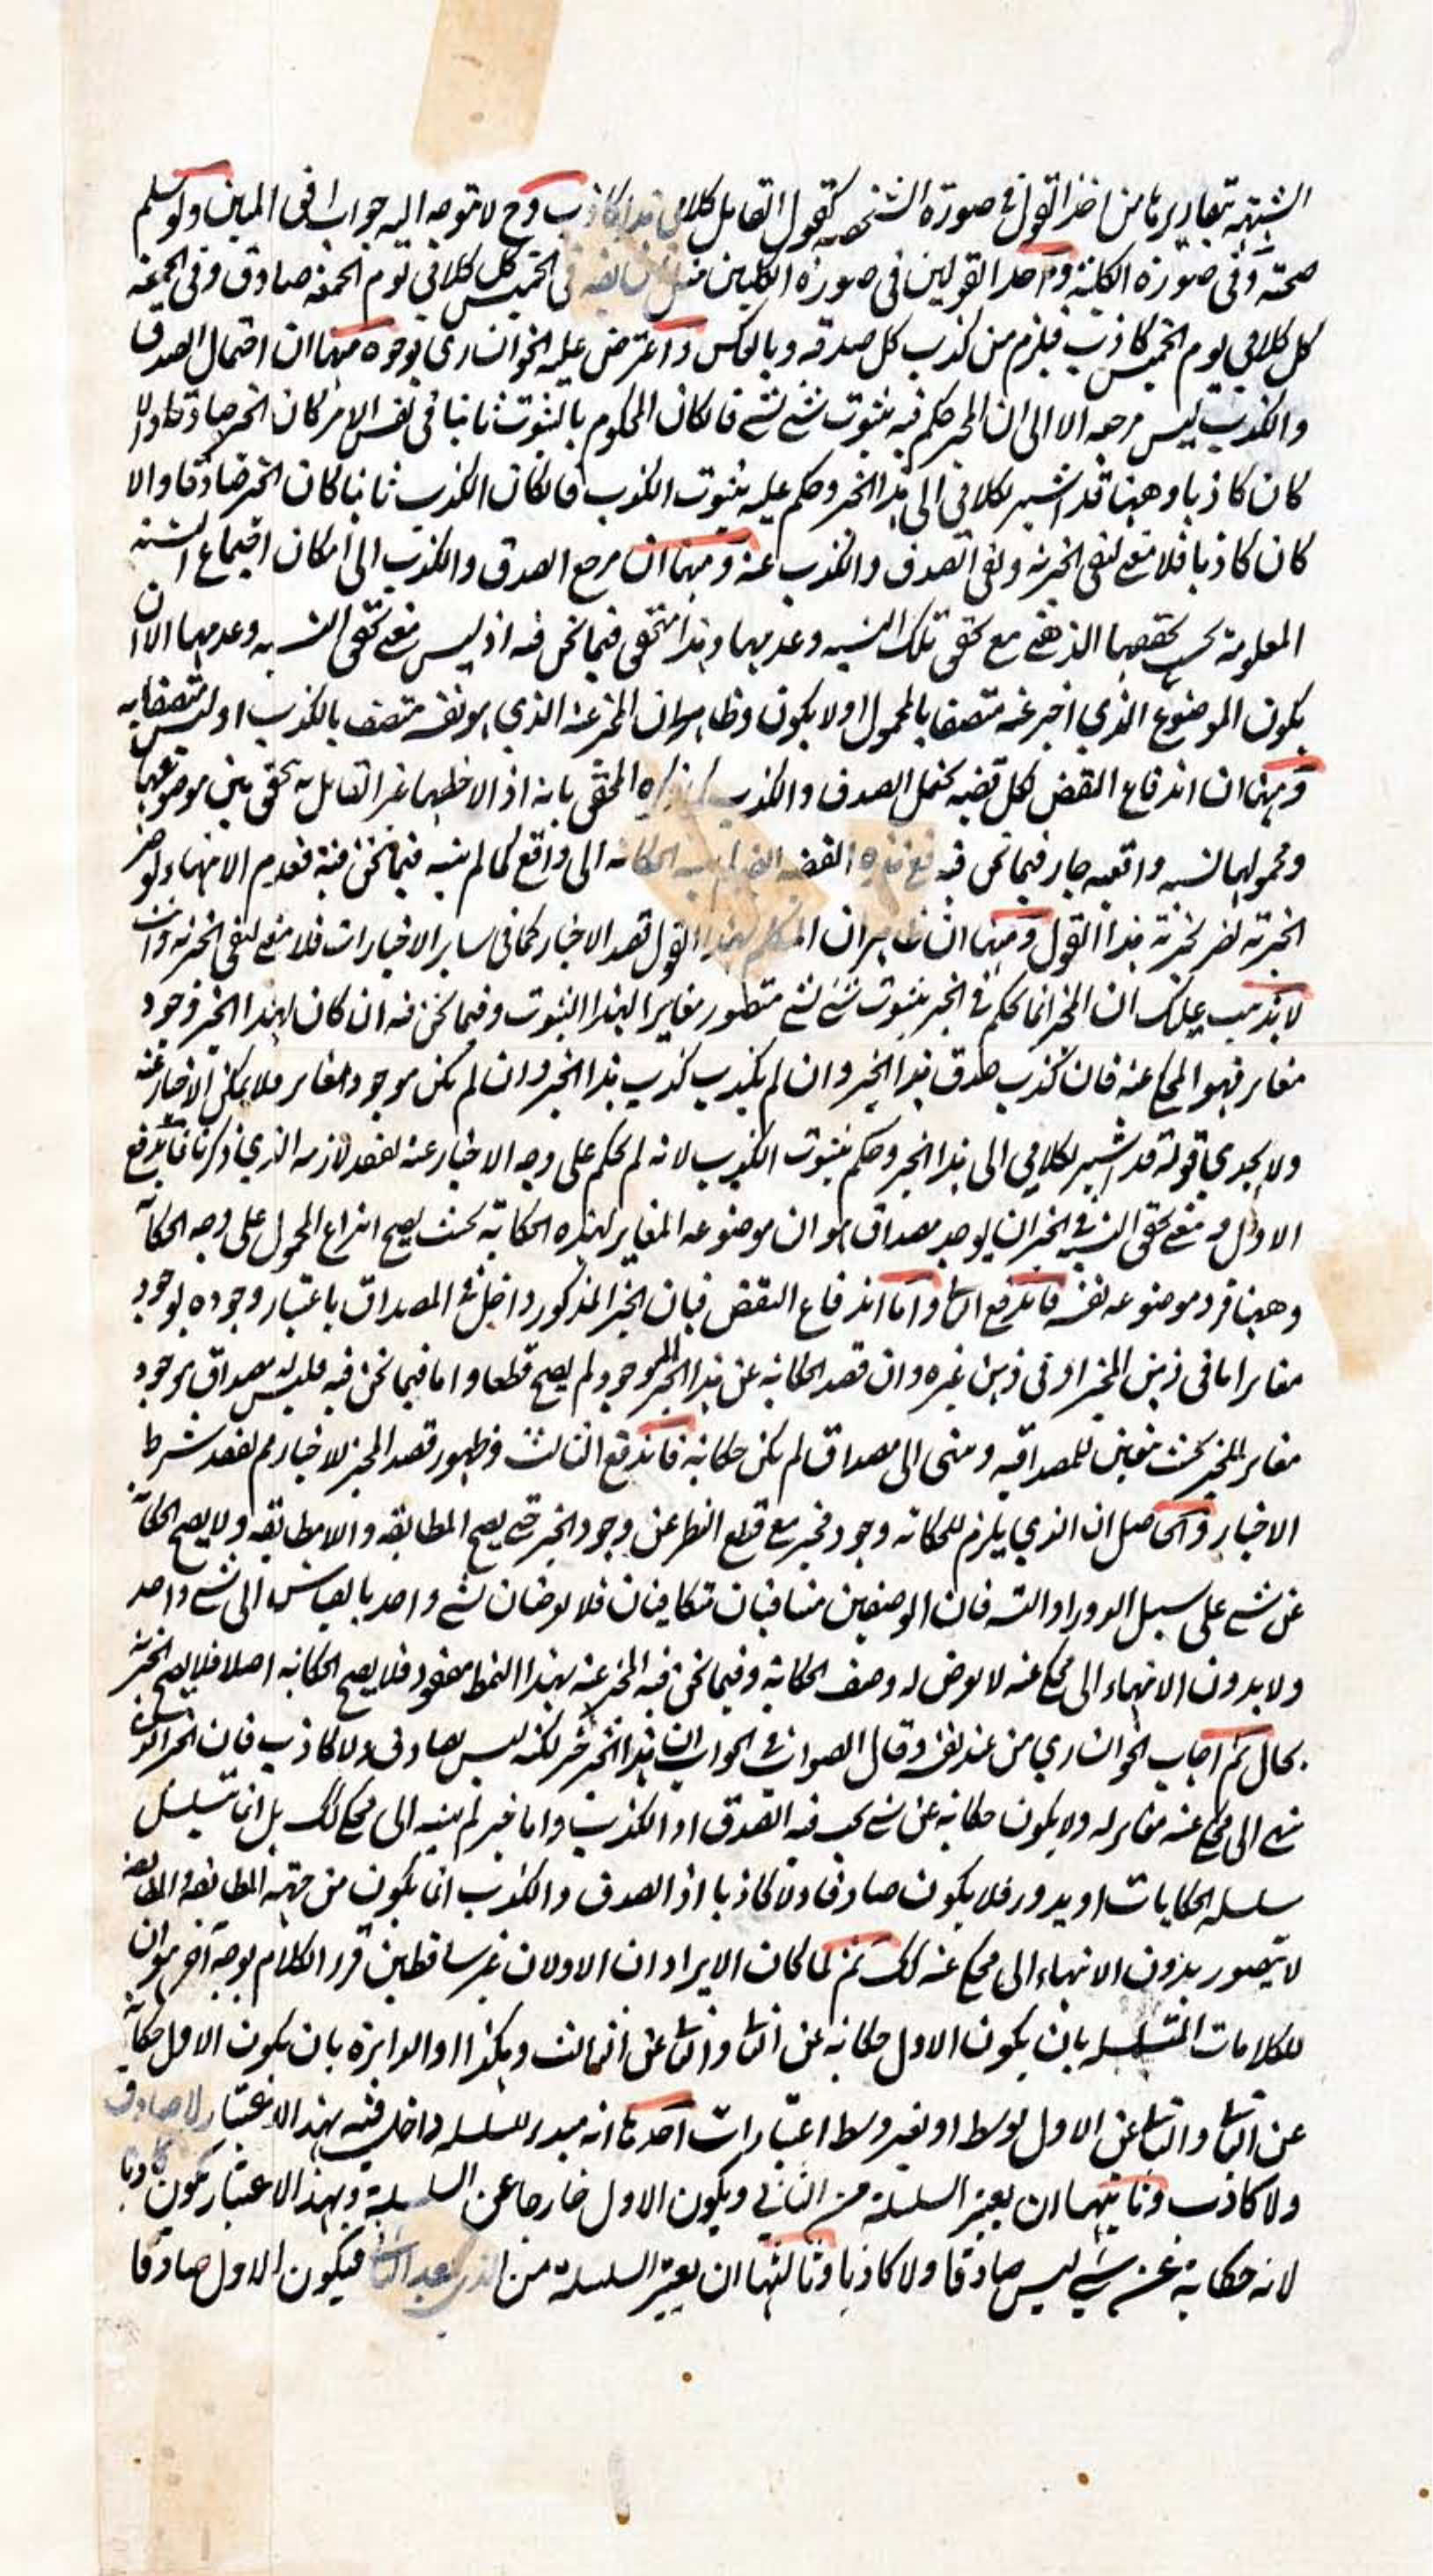 الشبهة بتقاريرها من اخذ القول في صورة الشخصية كقول القايل كلامي هذا كاذب وح لا يتوجه اليه جواب في المبين ولو سلم
صحته وفي صورة الكلية واحد القولين في صورة الكليين في الخميس كل كلامي يوم الجمعة صادق وفي الجمعة
كل كلامي يوم الخميس كاذب فيلزم من كذب كل صدقه وبالعكس واعترض عليه الخوانساري بوجوه منها ان احتمال الصدق
والكذب ليس مرجعه الا الى ان المخبر حكم فيه بثبوت شئ لشئ فان كان المحكوم بالثبوت ثابتا في نفس الامر كان الخبر صادقا والا
كان كاذبا وههنا قد اشير بكلامي الى هذا الخبر وحكم عليه بثبوت الكذب فان كان الكذب ثابتا كان الخبر صادقا والا
كان كاذبا فلا معنى لنفي الخبرية ونفي الصدق والكذب عنه ومنها ان مرجع الصدق والكذب الى امكان اجتماع النسبة
المعلومة بحسب تحققها الذهني مع تحقق تلك النسبة وعدمها وهذا متحقق فيما نحن فيه اذ ليس معنى تحقق النسبة وعدمها الا ان
يكون الموضوع الذي اخبر عنه متصفا بالمحمول او لا يكون وظاهر ان المخبر عنه الذي هو نفسه متصف بالكذب او ليس متصفا به
ومنها ان اندفاع النقض لكل قضية يحتمل الصدق والكذب المحقق بانه اذا لاحظها غير القايل به تحقق بين موضوعها
ومحمولها نسبة واقعية جار فيما نحن فيه مع هذه القضية الحكاية الى واقع كما لم ينته فيما نحن فيه فعدم الانتهاء لو ضر
الخبرية لضر لخبرية هذا القول ومنها ان ظاهر ان المتكلم بهذا القول قصد الاخبار كما في ساير الاخبارات فلا معنى لنفي الخبرية وانت
لا يذهب عليك ان المخبر انما يحكم في الخبر بثبوت شئ لشئ متصور مغايرا لهذا الثبوت وفيما نحن فيه ان كان لهذا الخبر وجود
مغاير فهو المحكي عنه فان كذب صدق هذا الخبر وان لم يكذب كذب هذا الخبر وان لم يكن موجود مغاير فلا يمكن الاخبار عنه
ولا يجدي قوله قد اشير بكلامي الى هذا الخبر وحكم بثبوت الكذب لانه لم يحكم على وجه الاخبار عنه لفقد لازمه الذي ذكرنا فاندفع
الاول ومعنى تحقق النسبة في الخبر ان يوجد مصداق هو ان موضوعه المغاير لهذه الحكاية بحيث يصح انتزاع المحمول على وجه الحكاية
وههنا فرد موضوعه نفسه فاندفع الثا واما اندفاع النقض فبان الخبر المذكور داخل في المصداق باعتبار وجوده بوجود
مغاير اما في ذهن المخبر او في ذهن غيره وان قصد الحكاية عن هذا الخبر الموجود لم يصح قطعا واما فيما نحن فيه فليس له مصداق بوجود
مغاير للخبر بحيث يتعين للمصداقية ومتى الى مصداق لم يكن حكاية فاندفع الثالث وظهور قصد المخبر للاخبار مم لفقد شرط
الاخبار والحاصل ان الذي يلزم للحكاية وجود مخبر مع قطع النظر عن وجود الخبر حتى يصح المطابقة واللامطابقة ولا يصح الحكاية
عن شئ على سبيل الدور او التسه فان الوصفين متنافيان متكافيان فلا يعرضان لشئ واحد بالقياس الى شئ واحد
ولا بدون الانتهاء الى محكي عنه لا يعرض له وصف الحكاية وفيما نحن فيه المخبر عنه بهذا النمط مفقود فلا يصح الحكاية اصلا فلا يصح الخبرية
بحال ثم اجاب الخوانساري من عند نفسه وقال الصواب في الجواب ان هذا الخبر خبر لكنه ليس بصادق ولا كاذب فان الخبر الذي
ينتهي الى محكي عنه مغاير له ولا يكون حكاية عن شئ يجب فيه الصدق او الكذب واما خبر لم ينته الى محكي كك بل انما تسلسل
سلسلة الحكايات او يدور فلا يكون صادقا ولا كاذبا اذ الصدق والكذب انما يكون من جهة المطابقة واللامطابقة
لا يتصور بدون الانتهاء الى محكي عنه كك ثم لما كان الايراد ان الاولان غير ساقطين قرر الكلام بوجه آخر هو ان
للكلامات المتسلسلة بان يكون الاول حكاية عن الثا والثا عن الثالث وهكذا او الدايرة بان يكون الاول حكاية
عن الثا والثا عن الاول بوسط او بغير وسط اعتبارات احدها انه مبدء للسلسلة داخل فيه بهذا الاعتبار لا صادق
ولا كاذب وثانيهما ان يعتبر السلسلة من الثاني ويكون الاول خارجا عن السلسلة وبهذا الاعتبار يكون كاذبا
لانه حكاية عن شئ ليس صادقا ولا كاذبا وثالثها ان يعتبر السلسلة من الذي بعد الثا فيكون الاول صادقا